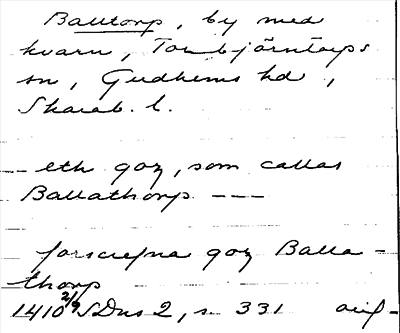 Balltorp, by med
kvarn, Torbjörntorps
sn, Gudhems hd,
Skarab. l.
-- eth goz, som callas
Ballathorp ---
forscrefna goz Balla-
thorp
1410 2/9 SDns 2, s. 331 avs-